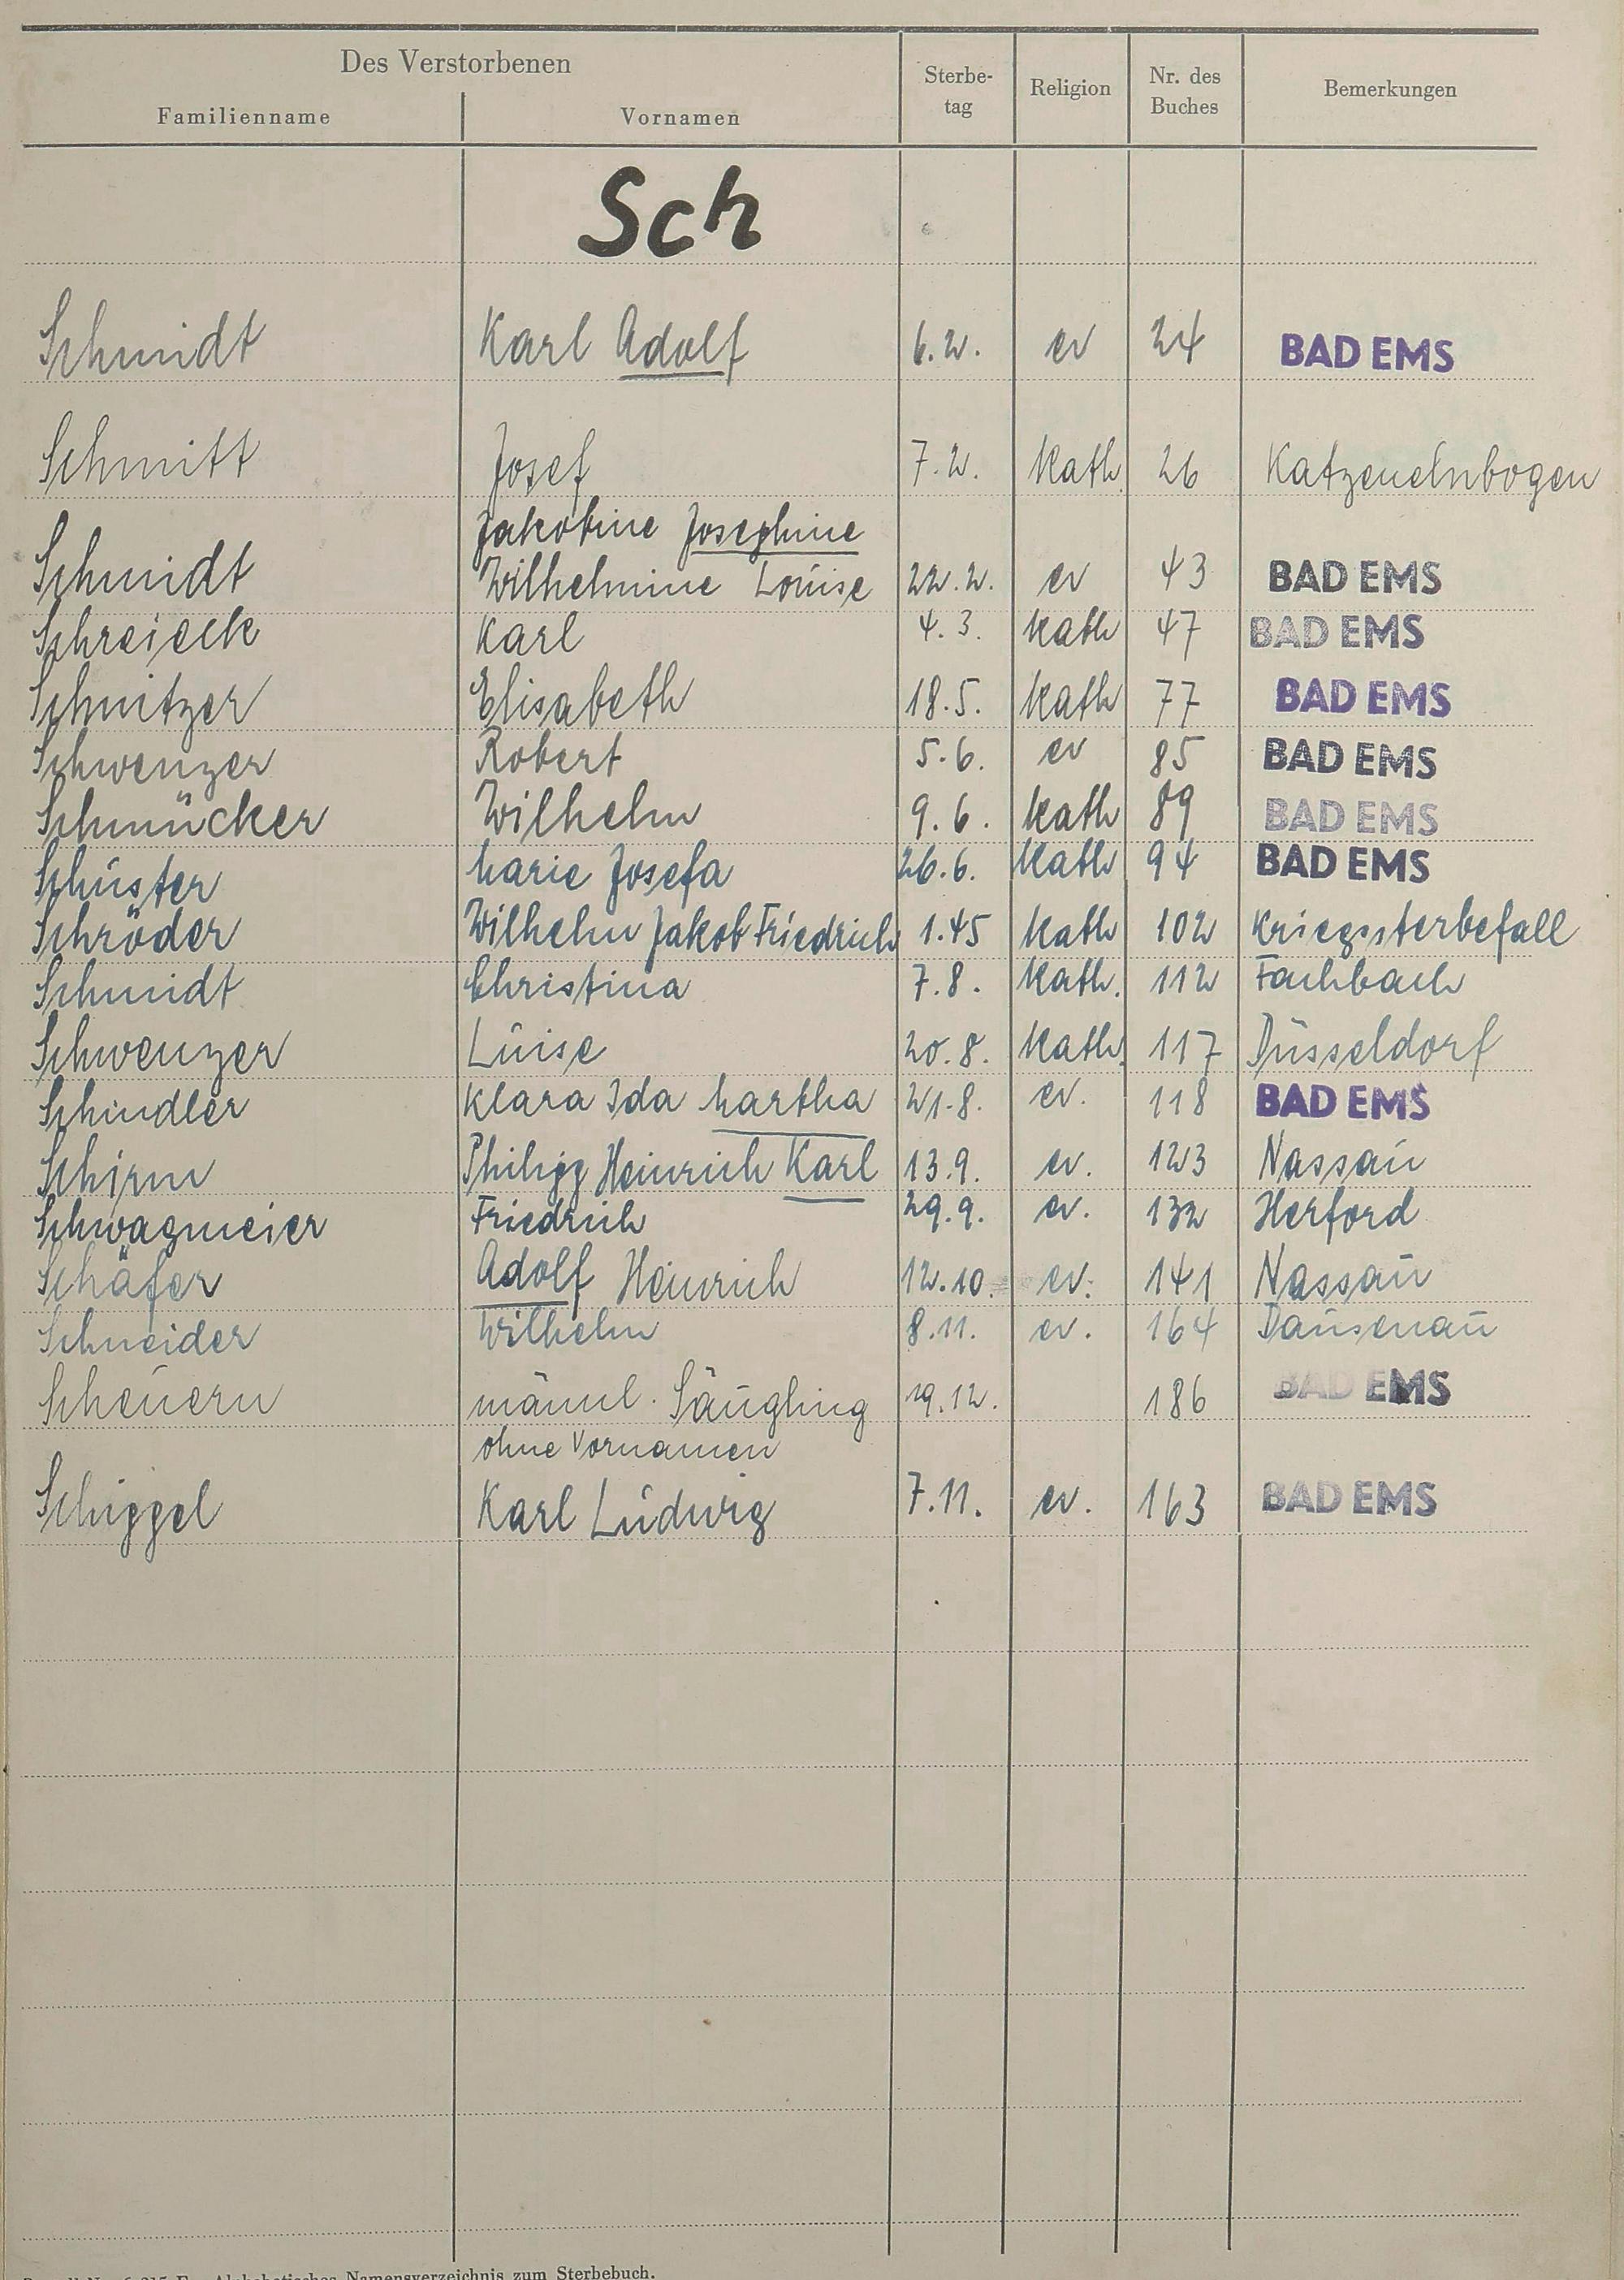 Des Verstorbenen
Familienname Vornamen Sterbe-tag Religion Nr. des Buches Bemerkungen
Sch
Schmidt Karl Adolf 6.2. ev 24 BAD EMS
Schmitt Josef 7.2. kath. 26 Katzenelnbogen
Jakobine Josephine
Schmidt Wilhelmine Louise 22.2. ev 43 BAD EMS
Schreieck Karl 4.3. kath 47 BAD EMS
Schnitzer Elisabeth 18.5. kath 77 BAD EMS
Schwenzer Robert 5.6. ev 85 BAD EMS
Schmücker Wilhelm 9.6. kath 89 BAD EMS
Schuster Marie Josefa 26.6. kath 94 BAD EMS
Schröder Wilhelm Jakob Friedrich 1.45 kath 102 Kriegssterbefall
Schmidt Christina 7.8. kath. 112 Fachbach
Schwenzer Luise 20.8. kath. 117 Düsseldorf
Schindler Klara Ida Martha 21.8. ev. 118 BAD EMS
Schirm Philipp Heinrich Karl 13.9. ev. 123 Nassau
Schwagmeier Friedrich 29.9. ev. 132 Herford
Schäfer Adolf Heinrich 12.10. ev. 141 Nassau
Schneider Wilhelm 8.11. ev. 164 Dausenau
Scheuern männl. Säugling 19.12. 186 BAD EMS
ohne Vornamen
Schippel Karl Ludwig 7.11. ev. 163 BAD EMS
Alphabetisches Namensverzeichnis zum Sterbebuch.